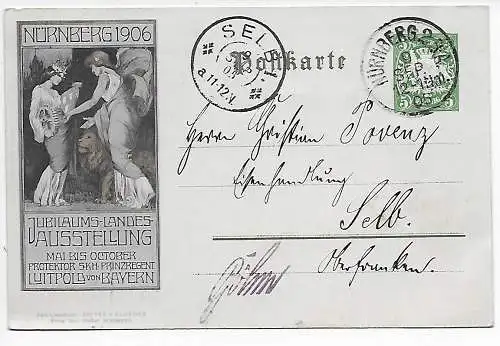 NÜRNBERG 1906
JUBILÄUMS-LANDES-
AUSSTELLUNG
MAI BIS OCTOBER
PROTEKTOR S.K.H. PRINZREGENT
LUITPOLD VON BAYERN
SELB
Postkarte
NÜRNBERG 2
5 5
Herrn Christian Porenz
Eisenhandlung
Selb.
Oberfranken.